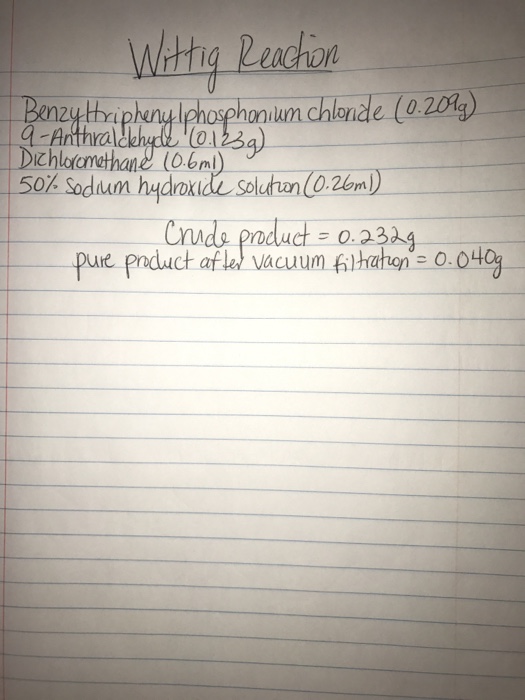 Wittig Reaction
Benzyltriphenylphosphonium chloride (0.209g)
9-Anthraldehyde (0.123g)
Dichloromethane (0.6ml)
50% sodium hydroxide solution (0.26ml)
Crude product = 0.232g
pure product after vacuum filtration = 0.040g